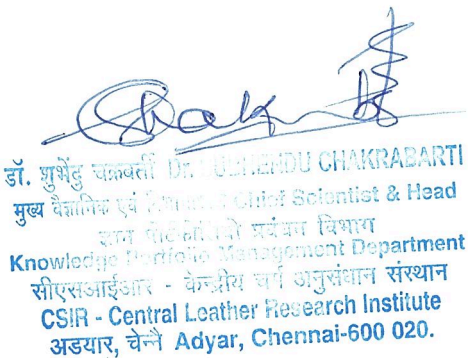 डॉ. शुभेंदु चक्रवर्ती Dr. CHAKRABARTI
मुख्य वैज्ञानिक एवं Chief Scientist & Head
ज्ञान प्रबंधन विभाग
Knowledge Portfolio Management Department
सीएसआईआर - केन्द्रीय चर्म अनुसंधान संस्थान
CSIR - Central Leather Research Institute
अडयार, चेन्नै Adyar, Chennai-600 020.